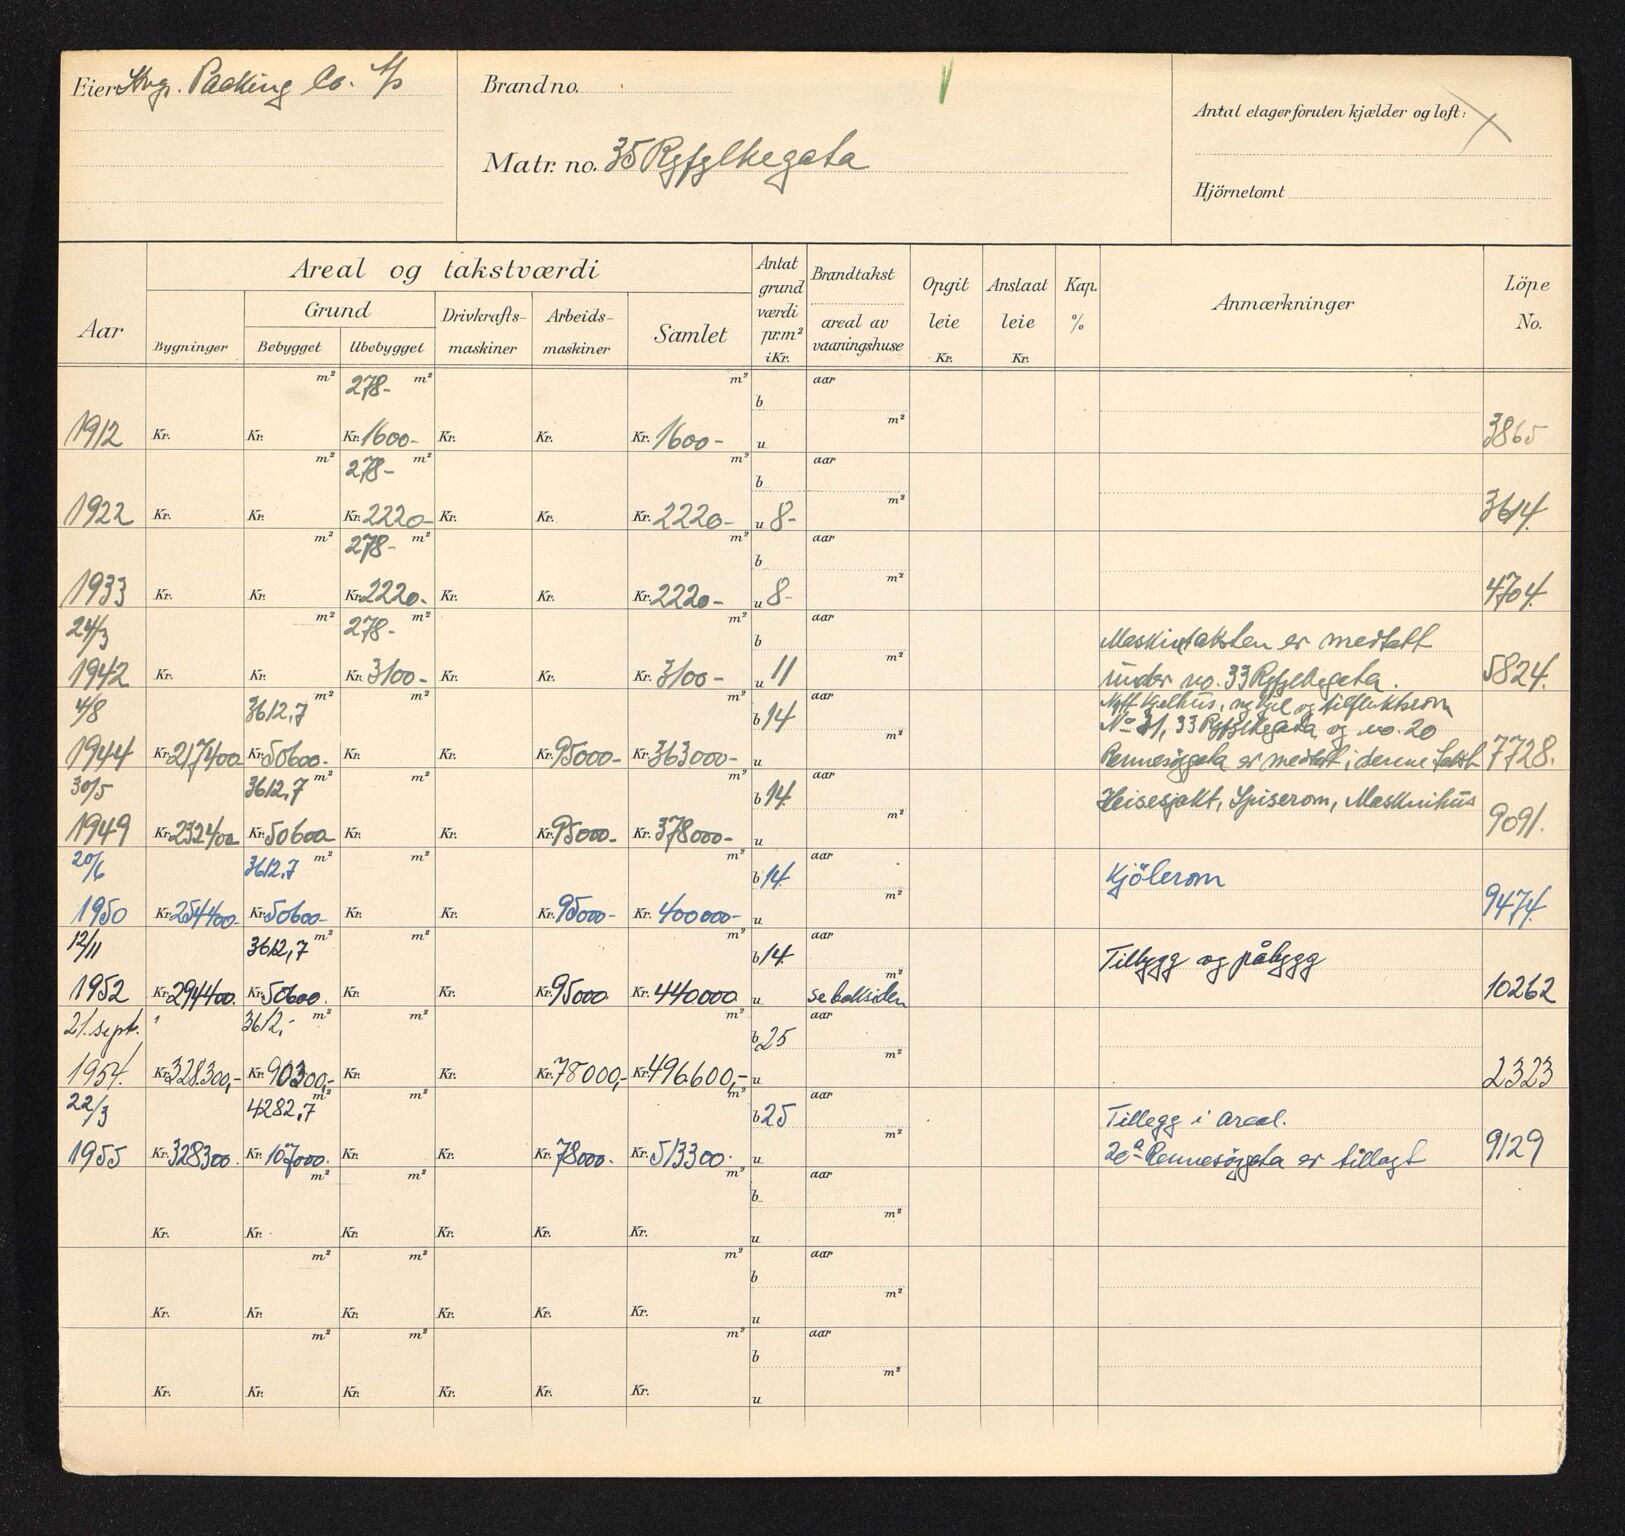 Eier Stvgr. Packing Co. A/S
Brand no.
Matr. no. 35 Ryfylkegata
Antal etager foruten kjælder og loft:
Hjörnetomt
Aar
Areal og takstværdi
Grund
Bygninger
Bebygget
Ubebygget
Drivkrafts-
maskiner
Arbeids-
maskiner
Samlet
Antat
grund
værdi
pr.m²
i Kr.
Brandtakst
areal av
vaaningshuse
Opgit
leie
Kr.
Anslaat
leie
Kr.
Kap.
%
Anmærkninger
Löpe
No.
m² 278- m² m² aar
b
1912 Kr. Kr. Kr. 1600- Kr. Kr. Kr. 1600- u m² 3865
m² 278- m² m² aar
b
1922 Kr. Kr. Kr. 2220- Kr. Kr. Kr. 2220- u 8- m² 3614.
m² 278- m² m² aar
b
1933 Kr. Kr. Kr. 2220- Kr. Kr. Kr. 2220- u 8- m² 4704.
24/3 m² 278- m² m² b aar Maskintaksten er medtatt
1942 Kr. Kr. Kr. 3100- Kr. Kr. Kr. 3100- u 11 m² under no. 33 Ryfylkegata. 5824.
4/8 3612,7 m² m² m² b 14 aar Nytt kjelhus, og tilfluktsrom
No 31, 33 Ryfylkegata og no. 20
1944 Kr. 217400- Kr. 50600- Kr. Kr. Kr. 95000- Kr. 363000- u m² Rennesøygata er medtatt i denne takst 7728.
30/5 3612,7 m² m² m² b 14 aar Heisesjakt, Spiserom, Maskinhus
1949 Kr. 232400 Kr. 50600 Kr. Kr. Kr. 95000- Kr. 378000- u m² 9091.
20/6 3612,7 m² m² m² b 14 aar Kjölerom
1950 Kr. 254400- Kr. 50600- Kr. Kr. Kr. 95000- Kr. 400000- u m² 9474.
12/11 3612,7 m² m² m² b 14 aar Tilbygg og påbygg
1952 Kr. 294400. Kr. 50600. Kr. Kr. Kr. 95000 Kr. 440.000 u m² se baksiden 10262
21. sept. 3612,- m² m² m² b 25 aar
1954. Kr. 328.300,- Kr. 90300,- Kr. Kr. Kr. 78000,- Kr. 496.600,- u m² 2323
22/3 4282,7 m² m² m² b 25 aar Tillegg i areal.
1955 Kr. 328300. Kr. 107000. Kr. Kr. Kr. 78000. Kr. 513300. u m² 20a Rennesøygata er tillagt 9129
m² m² m² aar
b
Kr. Kr. Kr. Kr. Kr. Kr. u m²
m² m² m² aar
b
Kr. Kr. Kr. Kr. Kr. Kr. u m²
m² m² m² aar
b
Kr. Kr. Kr. Kr. Kr. Kr. u m²